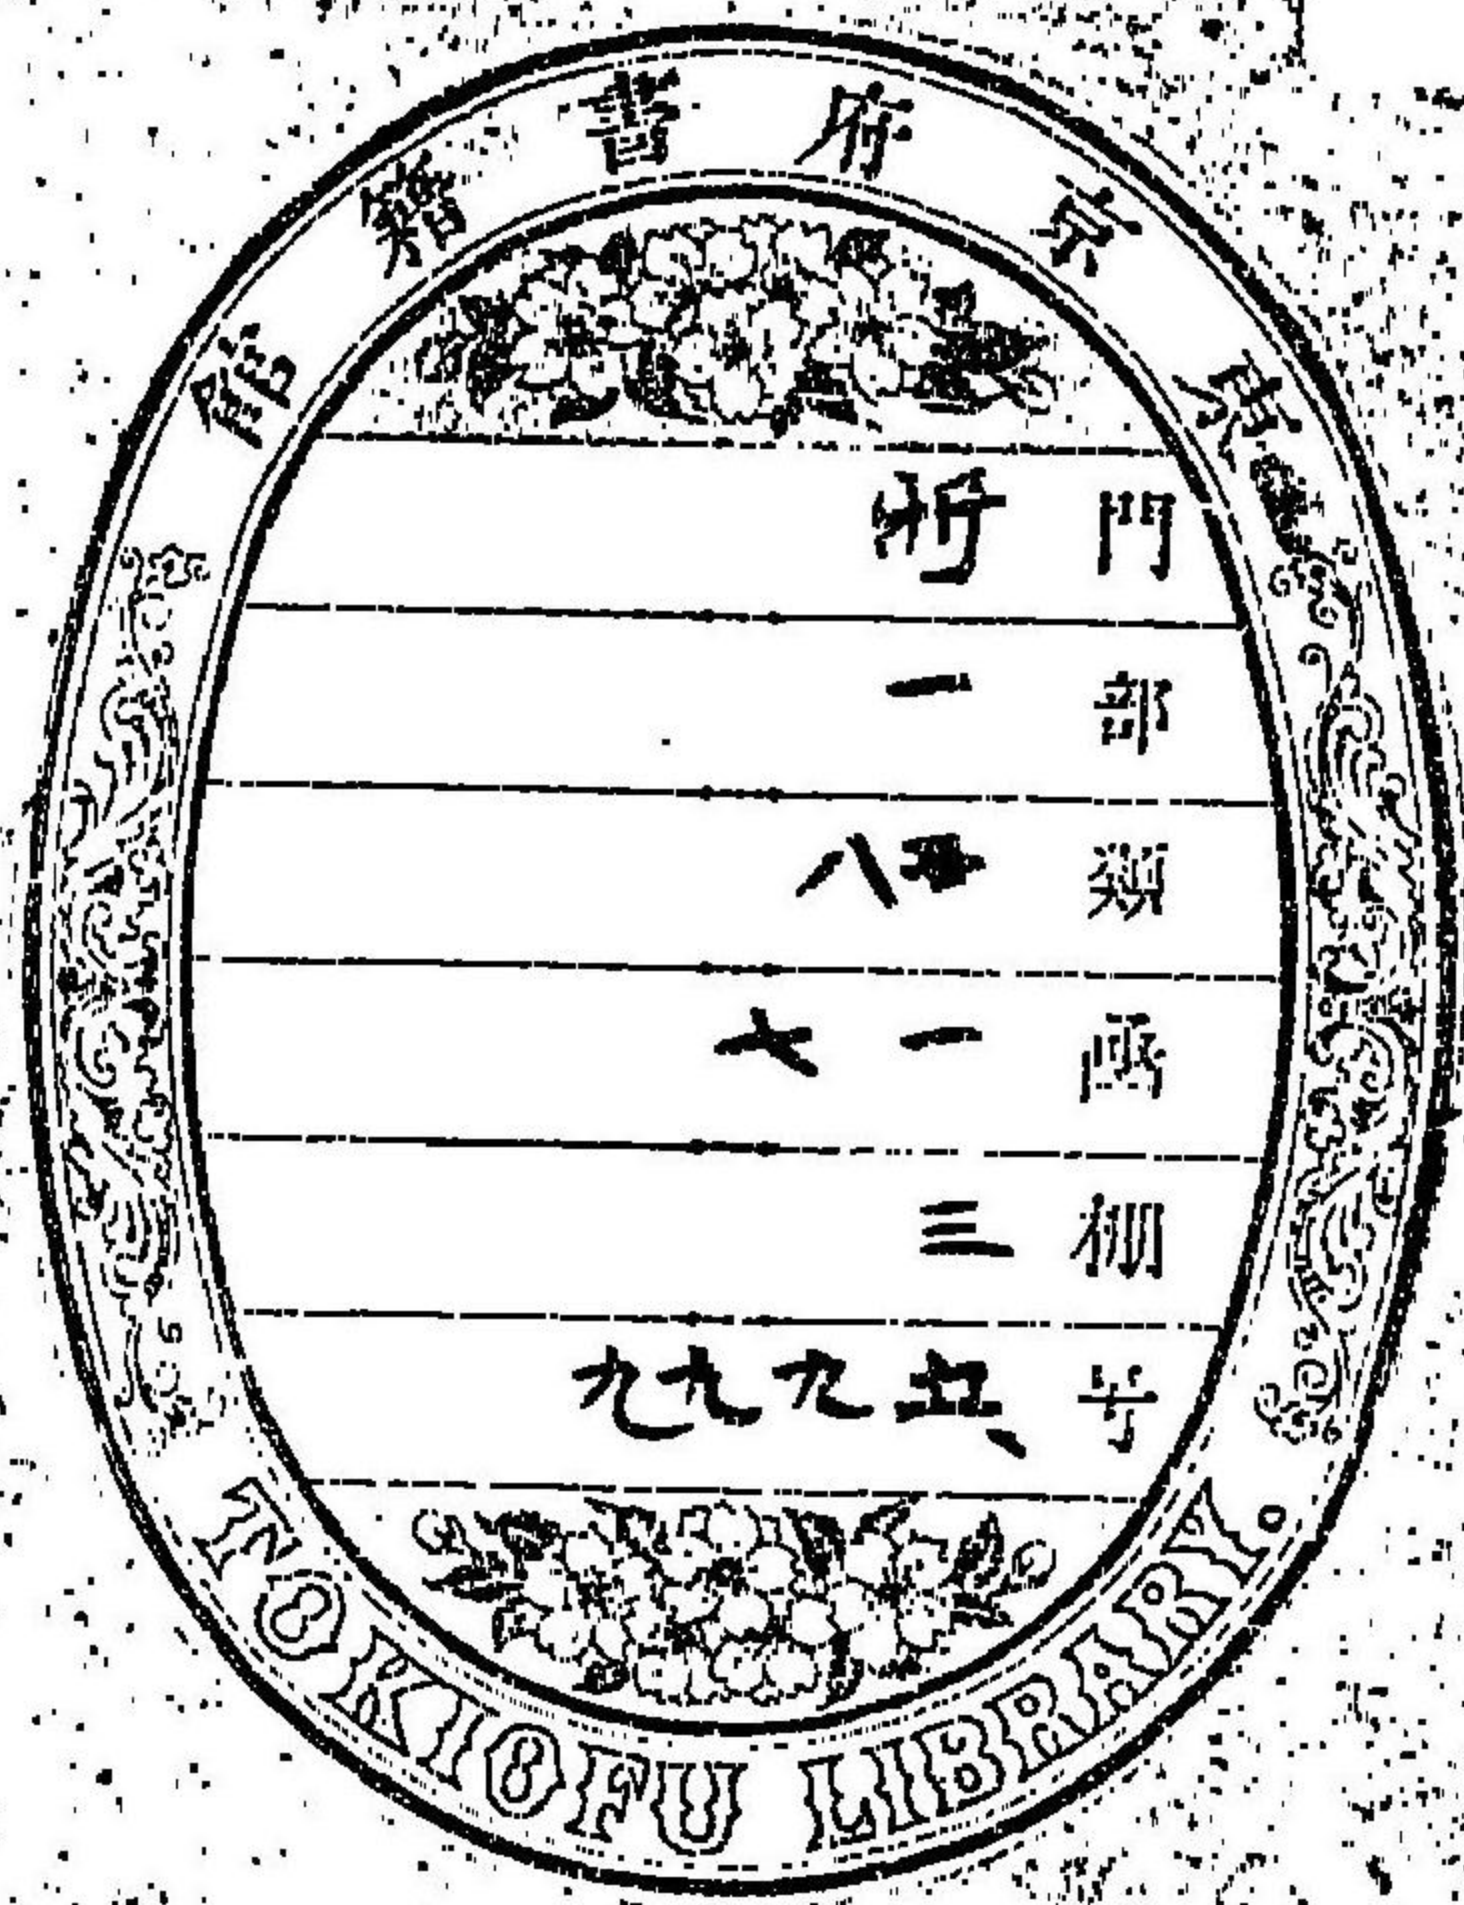 東京府書籍館
門 将
部 一
類 八
函 一七
棚 三
号 五、九九九
TOKIOFU LIBRARY.